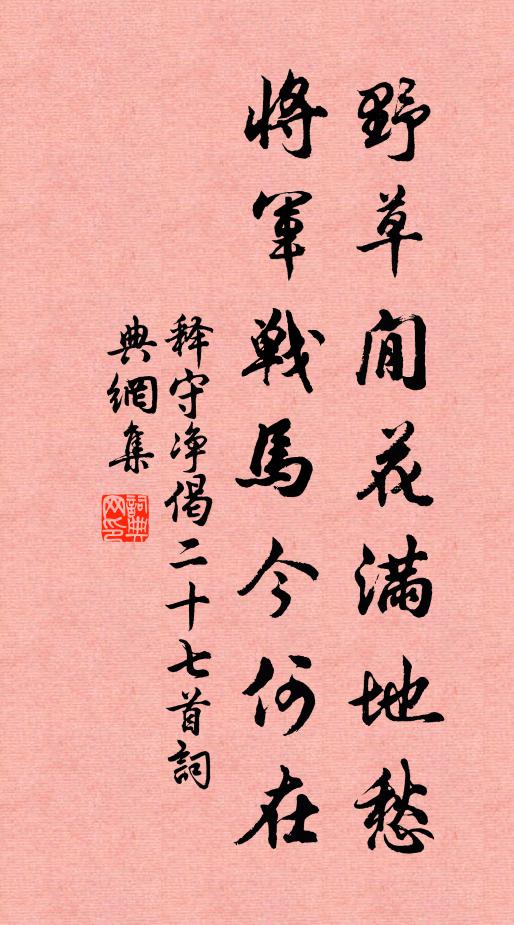 野草闲花满地愁
將軍戰馬今何在
释守净偈二十七首詞
典網集
詞典網印